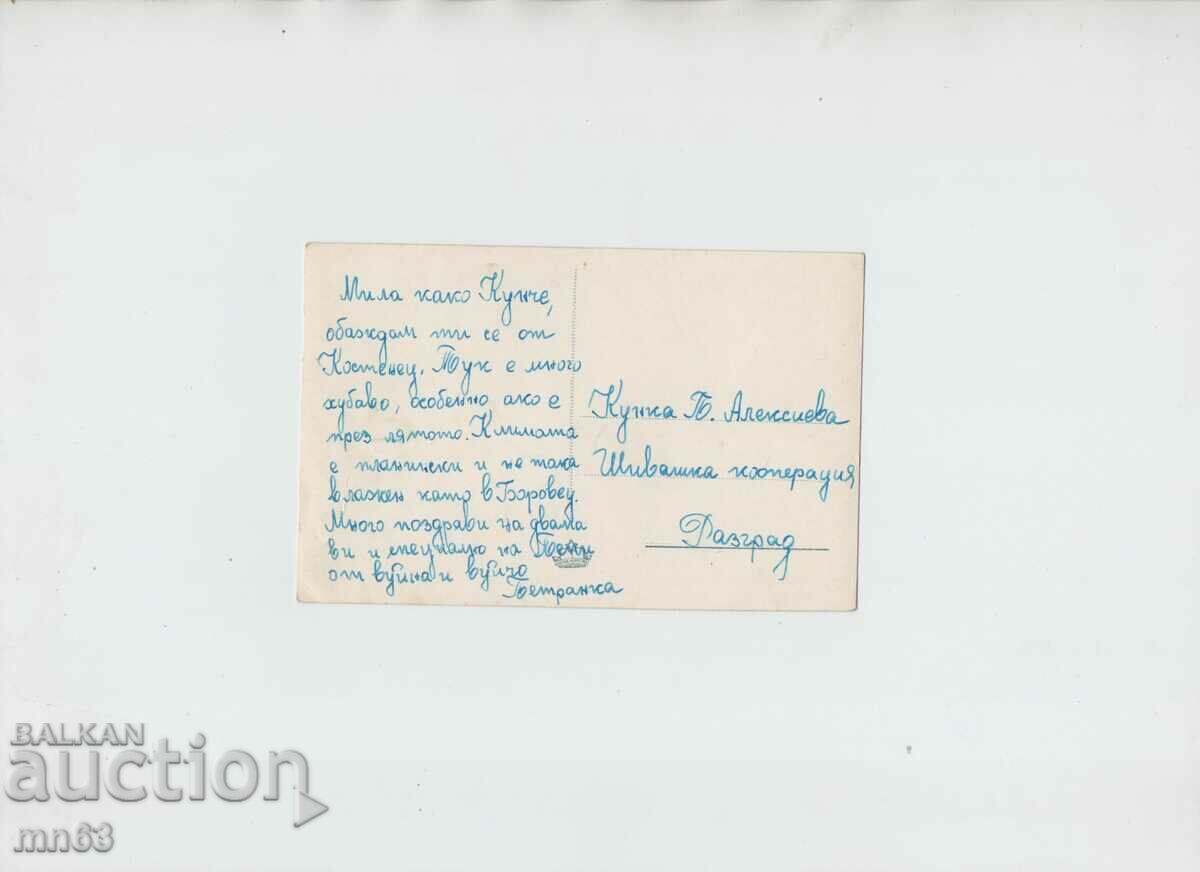 Мила како Кунче,
обаждам ти се от
Костенец. Тук е много
хубаво, особенно ако е
през лятото. Климата
е планински и не така
влажен като в Боровец.
Много поздрави на двама
ви и специално на Пепи
от вуйна и вуйчо
Петранка
Кунка П. Алексиева
Шивашка кооперация
Разград
BALKAN
auction
mn63